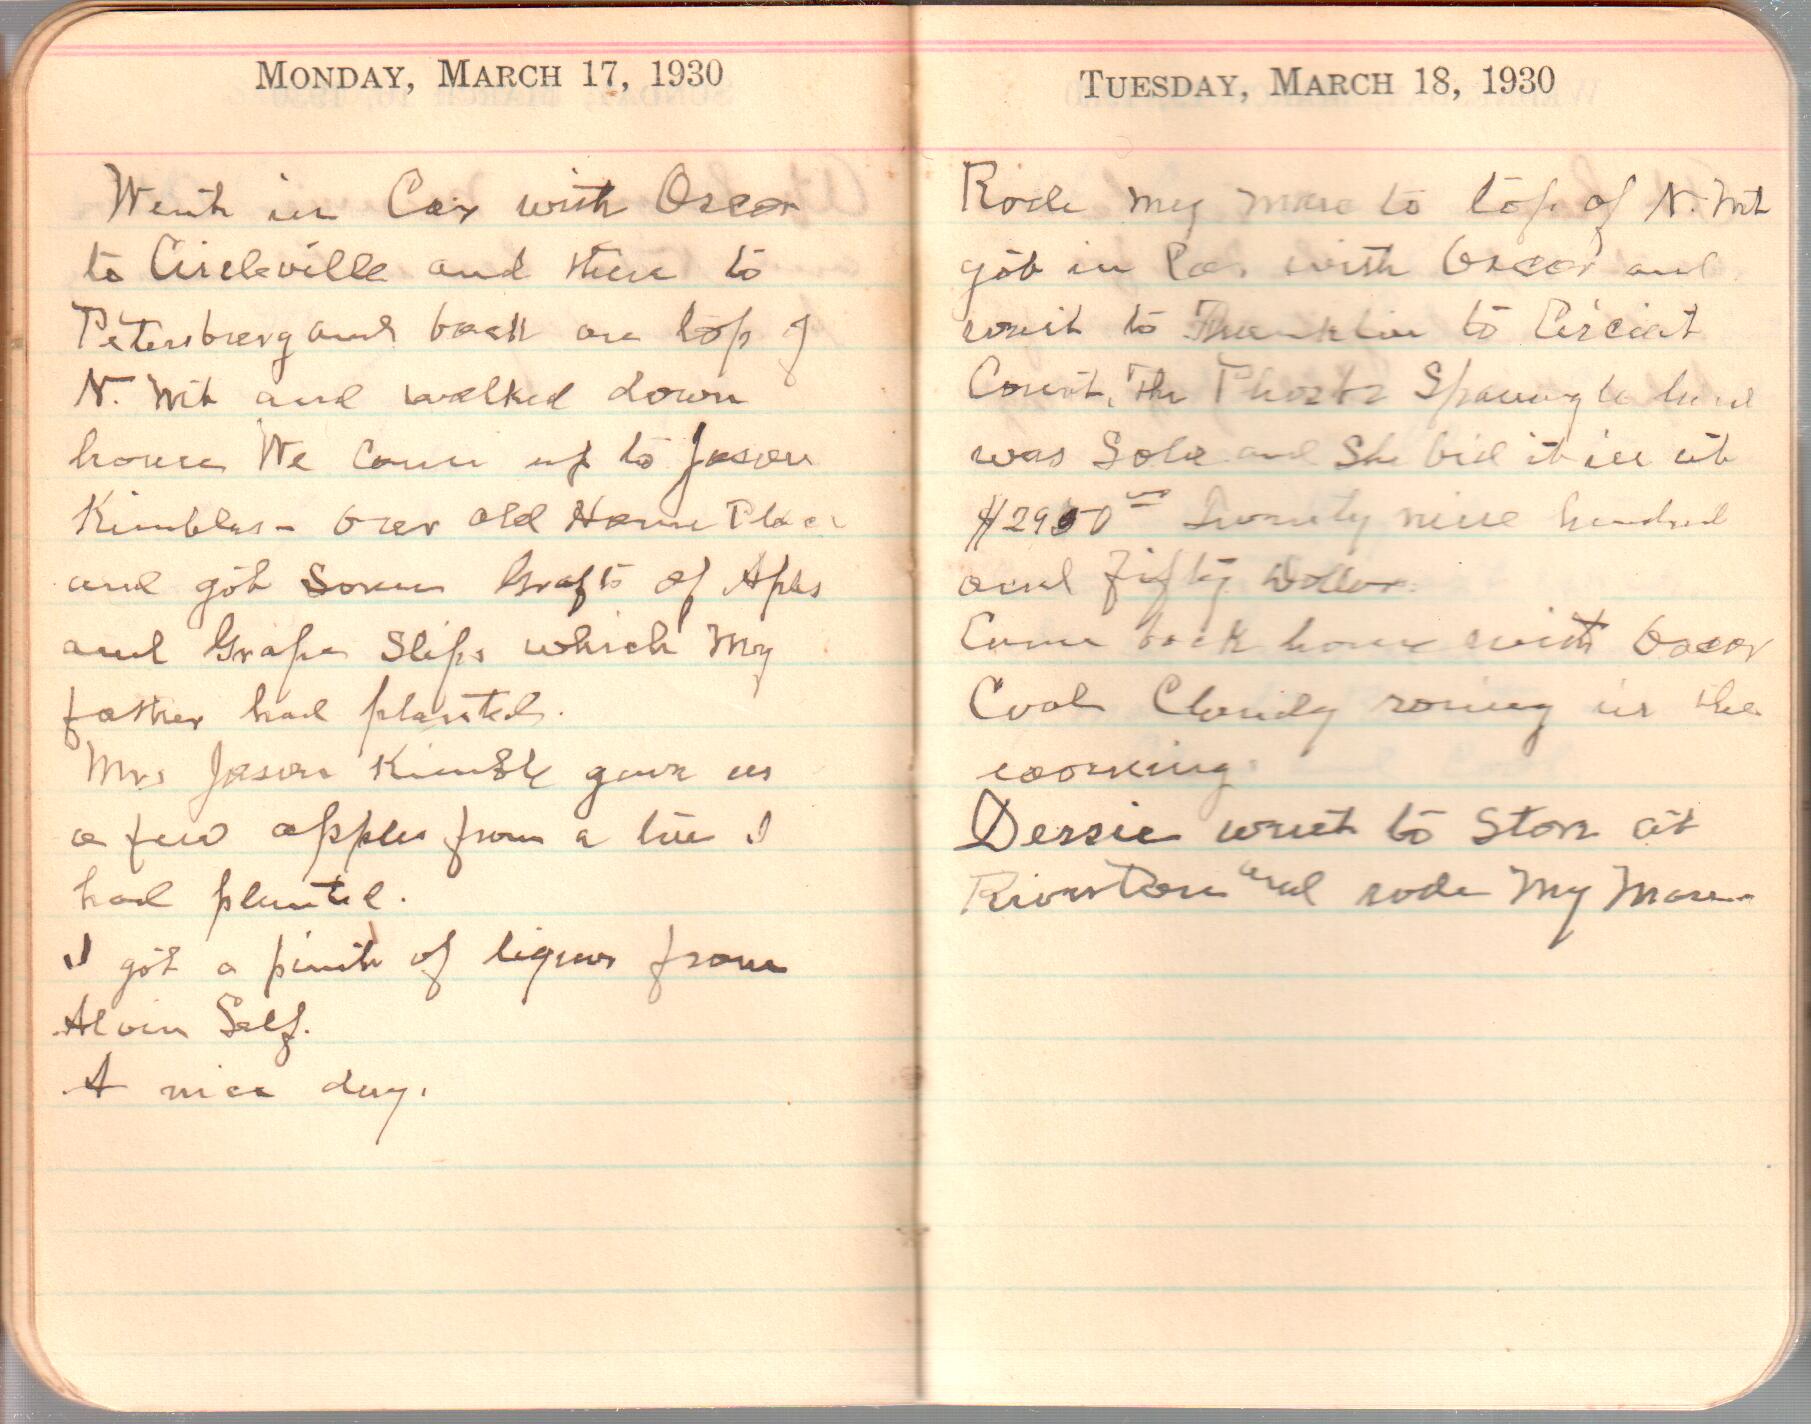 MONDAY, MARCH 17, 1930
Went in Car with Oscar
to Circleville and then to
Petersburg and back on top of
N. Mt and walked down
home We came up to Jason
Kimbles - over old Home Place
and got Some Grafts of Apls
and Grape Slips which My
father had planted.
Mrs Jason Kimble gave us
a few apples from a tree I
had planted.
I got a pint of liquor from
Alvin Self.
A nice day.
TUESDAY, MARCH 18, 1930
Rode my mare to top of N. Mt
got in Car with Oscar and
went to Franklin to Circiut
Court, The Spaungle land
was Sold and She bid it in at
$2950 00 Twenty nine hundred
and Fifty Dollar.
Came back home with Oscar
Cool Cloudy raning in the
Dessie went to Store at
Riverton and rode My Mare